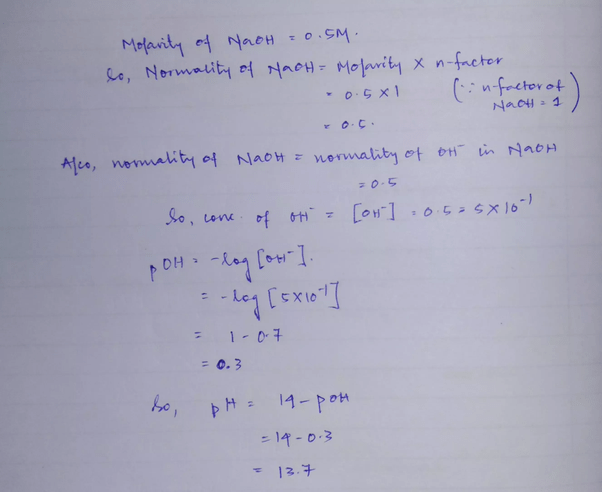 Molarity of NaOH = 0.5M.
So, Normality of NaOH = Molarity × n-factor
= 0.5 × 1 (∵ n-factor of NaOH = 1)
= 0.5.
Also, normality of NaOH = normality of OH⁻ in NaOH
= 0.5
So, conc. of OH⁻ = [OH⁻] = 0.5 = 5×10⁻¹
pOH = -log [OH⁻].
= -log [5×10⁻¹]
= 1 - 0.7
= 0.3
So, pH = 14 - pOH
= 14 - 0.3
= 13.7